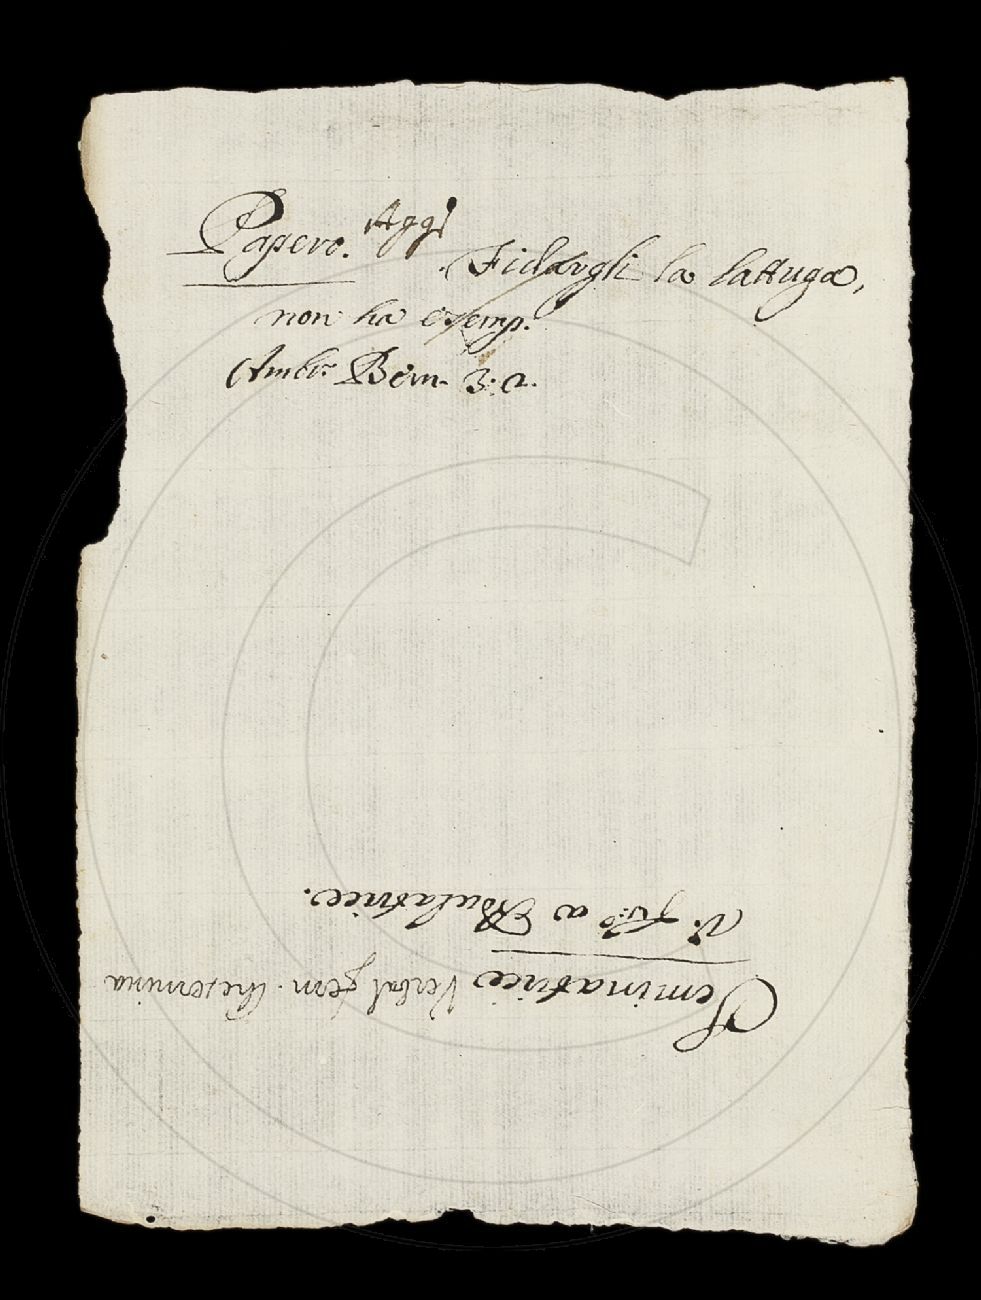 Papero. Aggi
Fidargli la lattuga,
non ha esemp.
Ambr. Bern. 3. 2.
Seminatrice Verbal fem. Che semina
V. a Adulatrice.